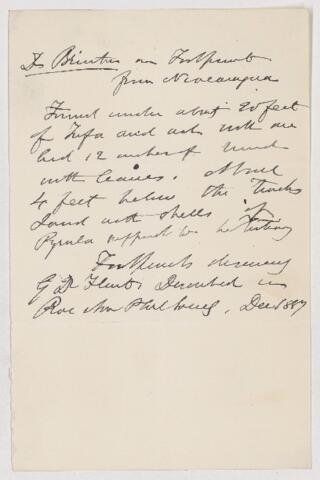 Dr Brinton on Footprints
from Nicaragua
Found under about 20 feet
of Tufa and ash with one
bed 12 inches of mud
with leaves. About
4 feet below the Tracks
sand with shells of
Pyrula supposed to be Tertiary
Footprints discovery
G Dr Flint Described in
Proc Am Phil Soc, Dec 1887